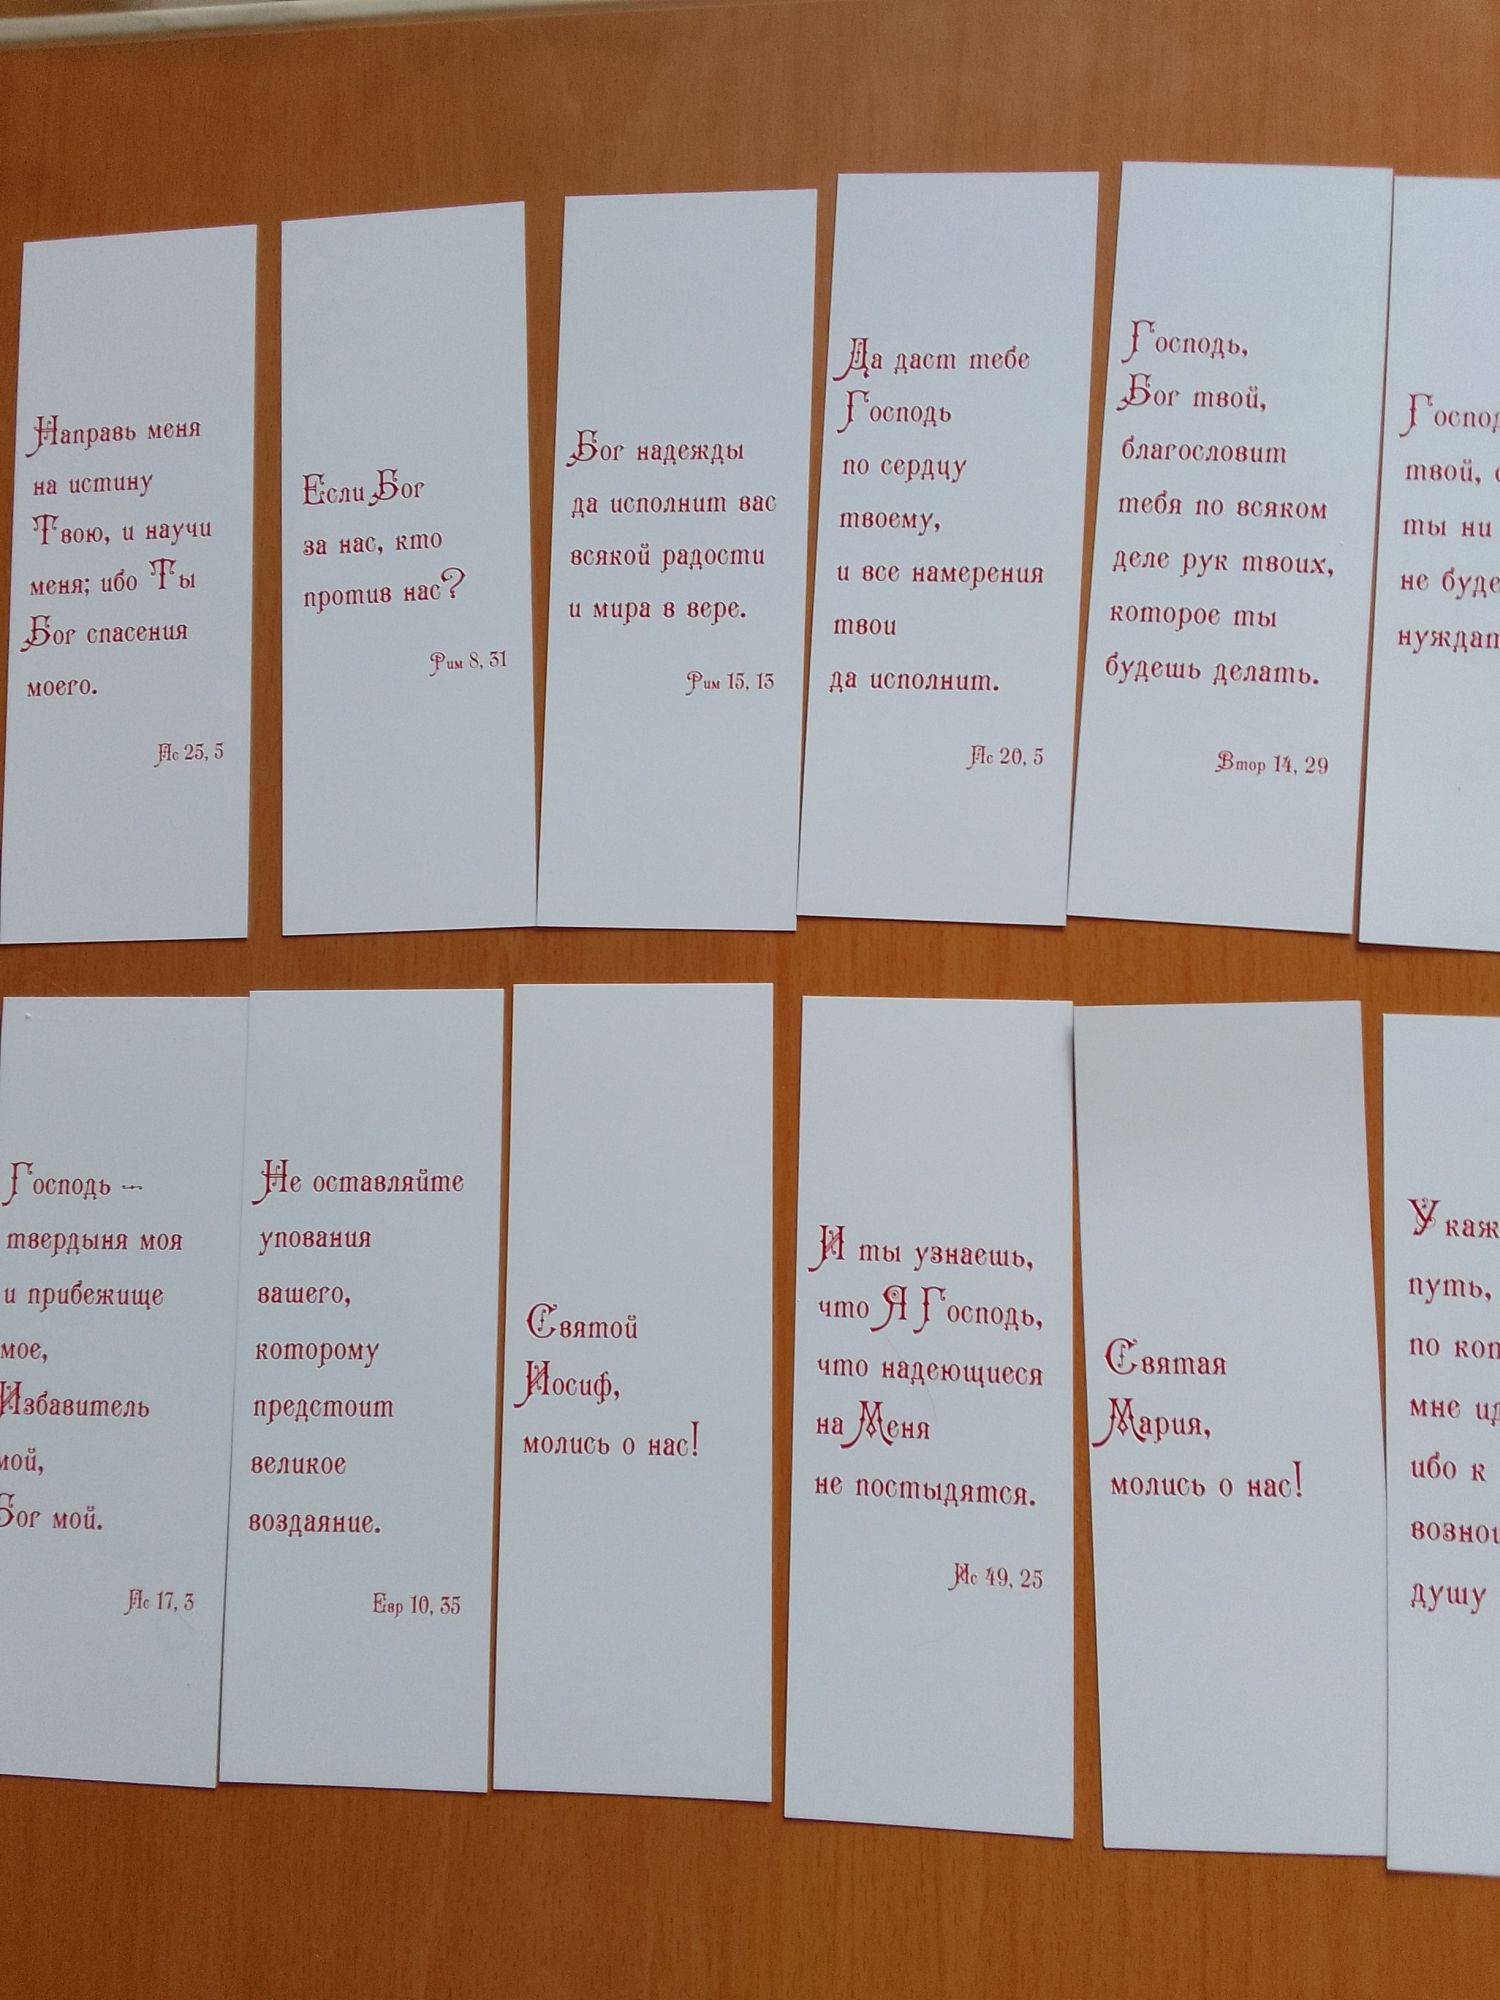 Направь меня
на истину
Твою, и научи
меня; ибо Ты
Бог спасения
моего.
Пс 25, 5
Если Бог
за нас, кто
против нас?
Рим 8, 31
Бог надежды
да исполнит вас
всякой радости
и мира в вере.
Рим 15, 13
Да даст тебе
Господь
по сердцу
твоему,
и все намерения
твои
да исполнит.
Пс 20, 5
Господь,
Бог твой,
благословит
тебя по всяком
деле рук твоих,
которое ты
будешь делать.
Втор 14, 29
твой,
ты ни
не
Господь –
твердыня моя
и прибежище
мое,
Избавитель
мой,
Бог мой.
Пс 17, 3
Не оставляйте
упования
вашего,
которому
предстоит
великое
воздаяние.
Евр 10, 35
Святой
Иосиф,
молись о нас!
И ты узнаешь,
что Я Господь,
что надеющиеся
на Меня
не постыдятся.
Ис 49, 25
Святая
Мария,
молись о нас!
путь,
по
мне
ибо к
душу